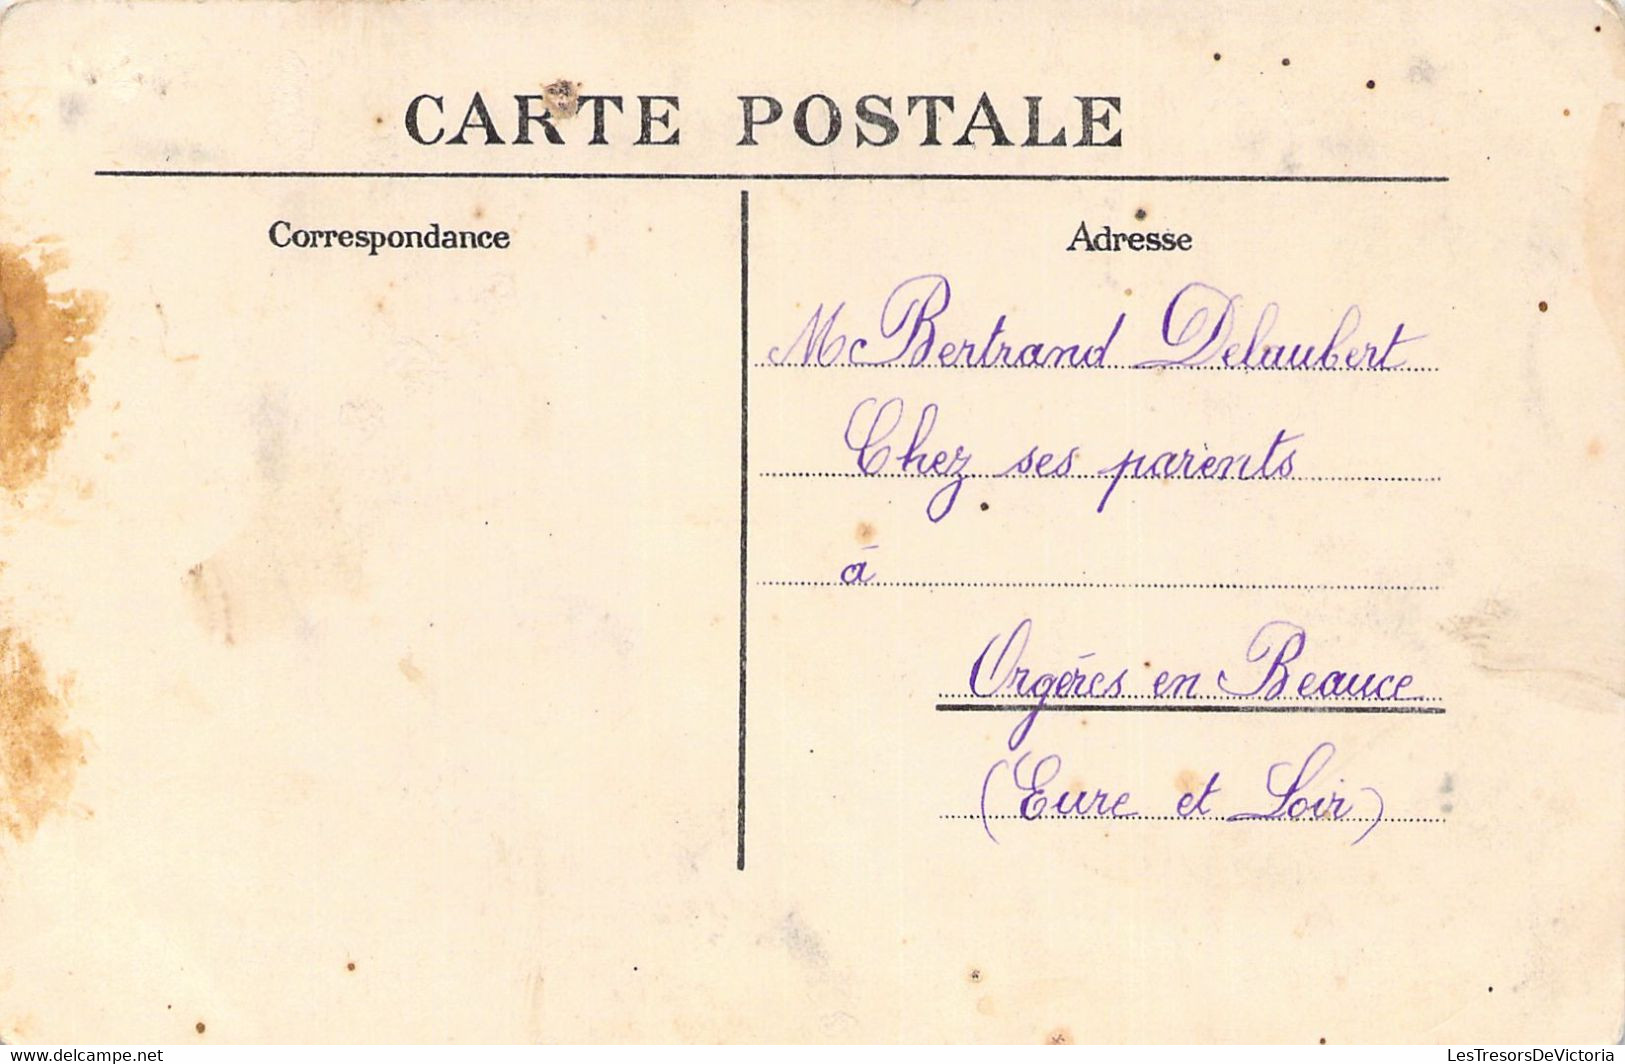 CARTE POSTALE
Correspondance
Adresse
Mr Bertrand Delaubert
Chez ses parents
à
Orgères en Beauce
(Eure et Loir)
www.delcampe.net
LesTresorsDeVictoria